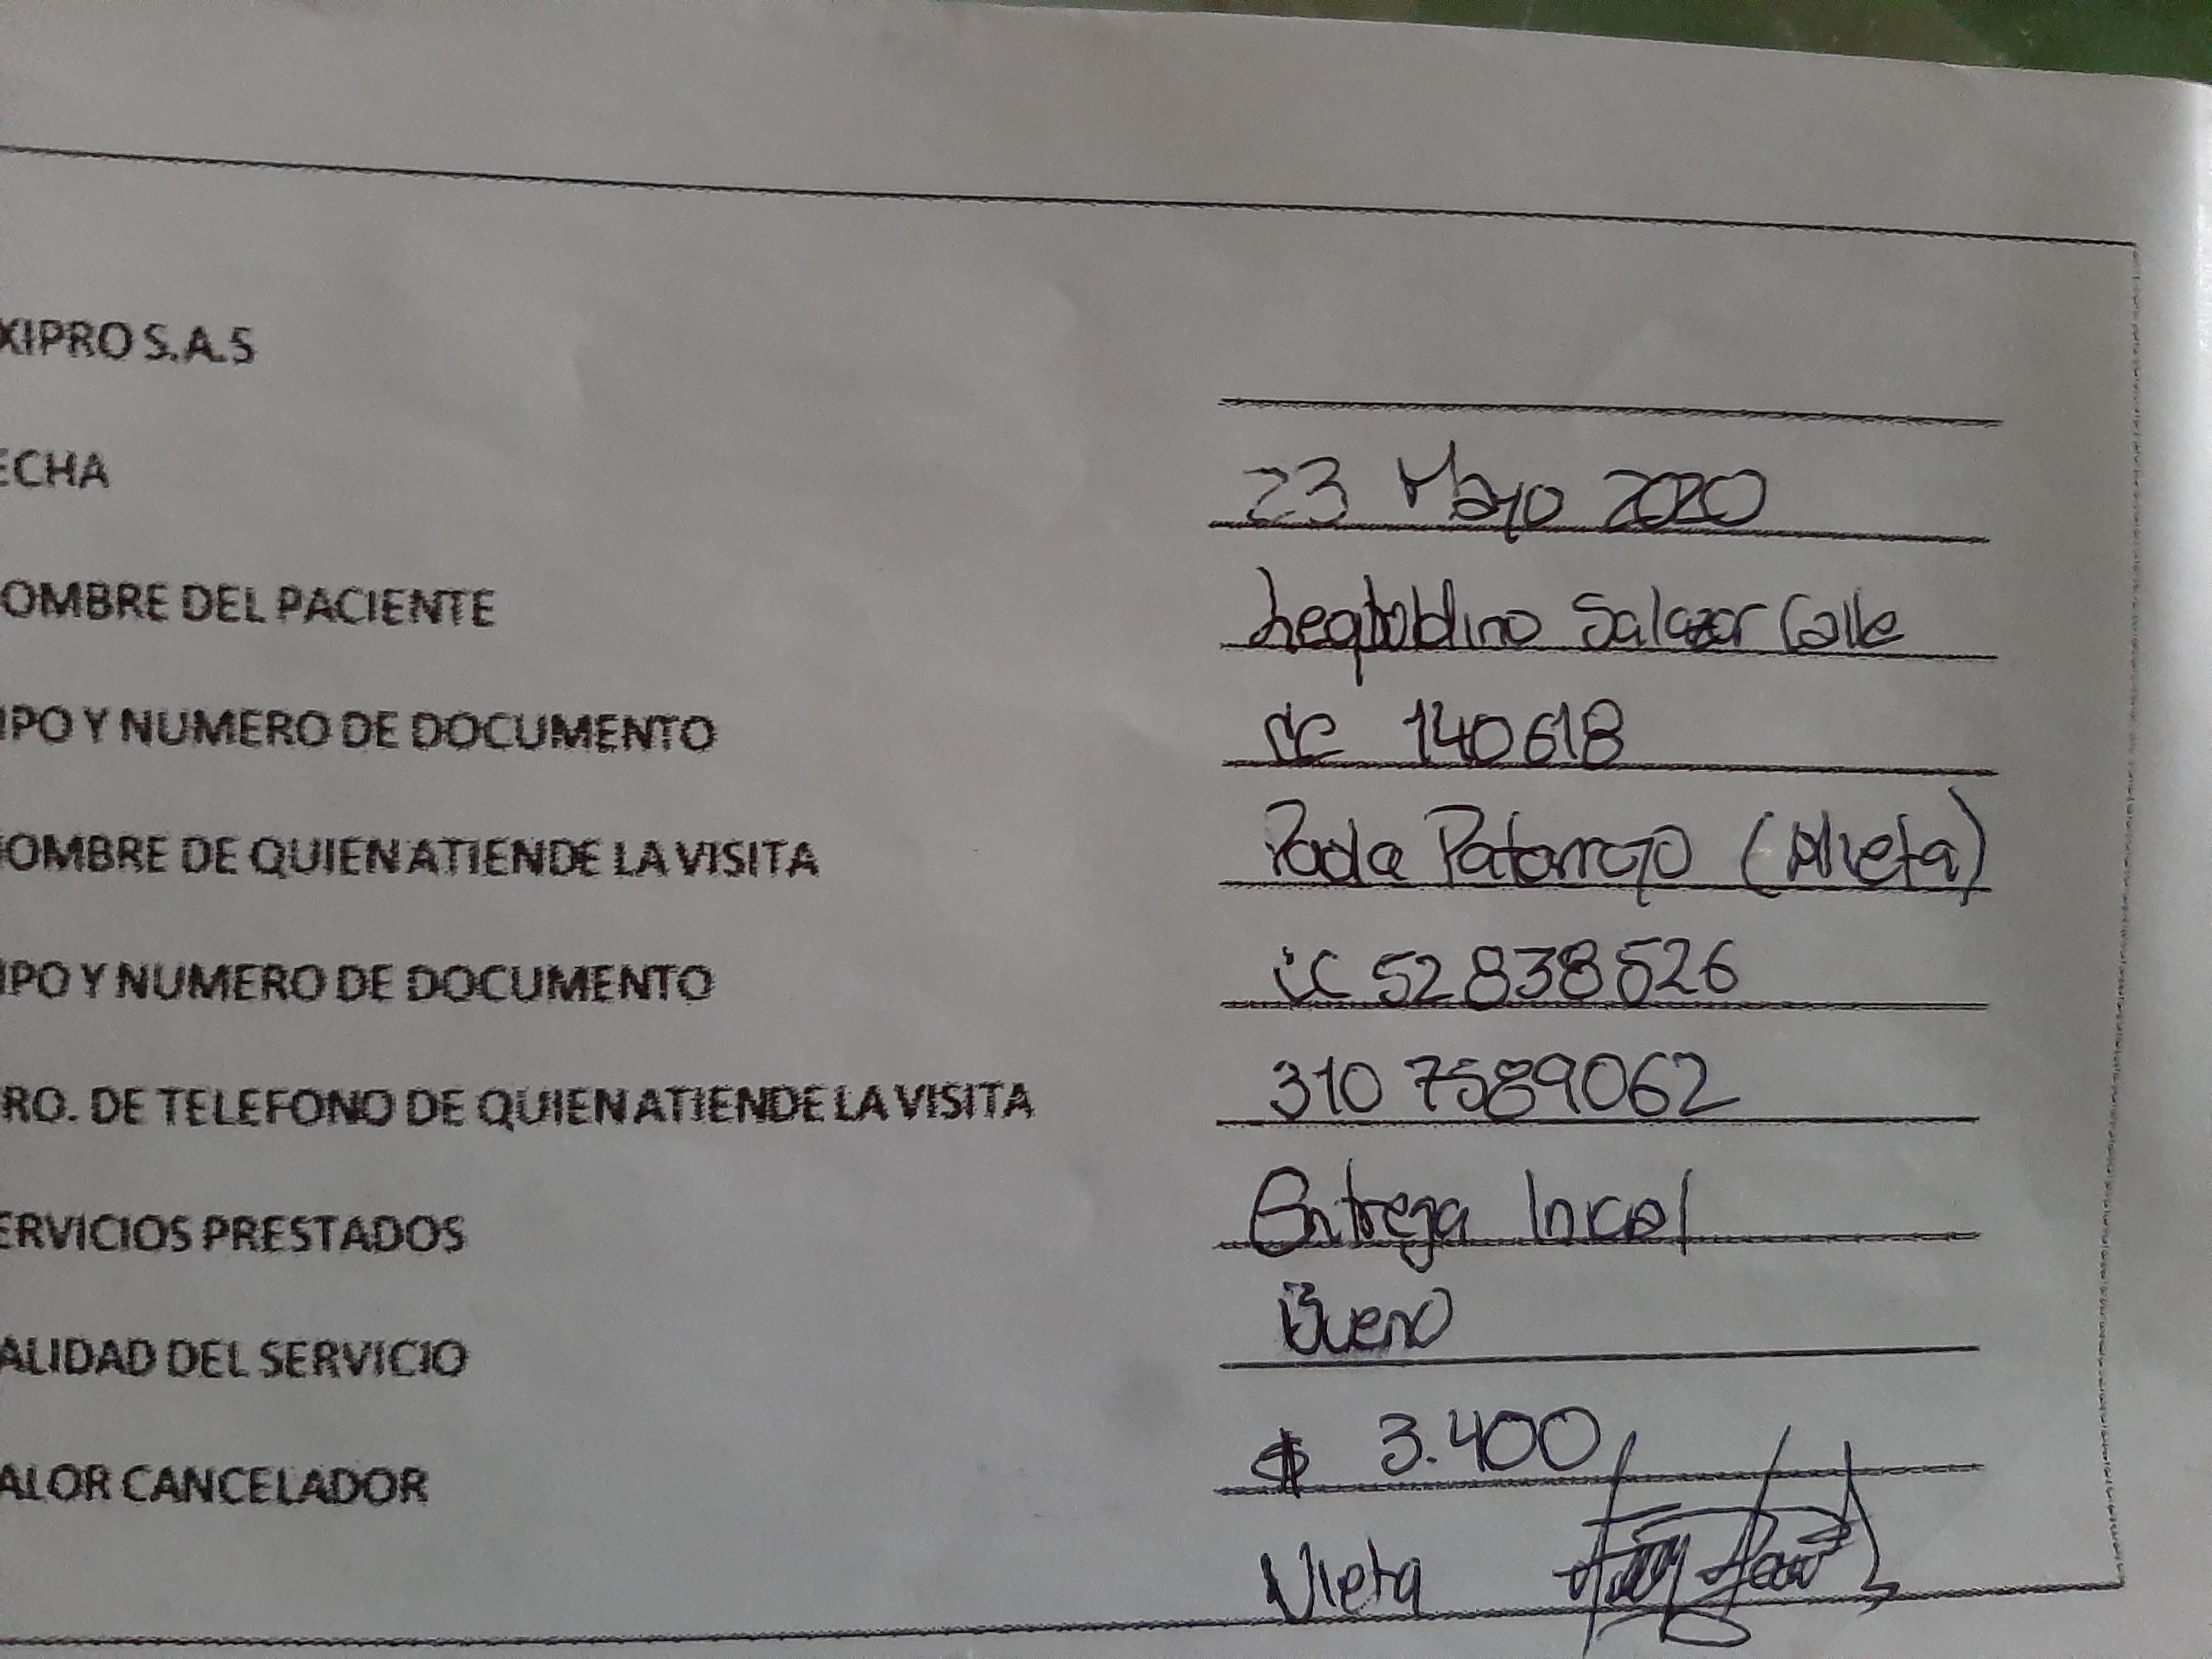 XIPRO S.A.S
ECHA 23 Mayo 2020
OMBRE DEL PACIENTE Salazar Calle
IPO Y NUMERO DE DOCUMENTO CC 140618
OMBRE DE QUIEN ATIENDE LA VISITA Paola Patarroyo (Nieta)
IPO Y NUMERO DE DOCUMENTO CC 52838526
RO. DE TELEFONO DE QUIEN ATIENDE LA VISITA 310 7589062
ERVICIOS PRESTADOS Entrega
ALIDAD DEL SERVICIO Bueno
ALOR CANCELADOR $ 3.400
Nieta